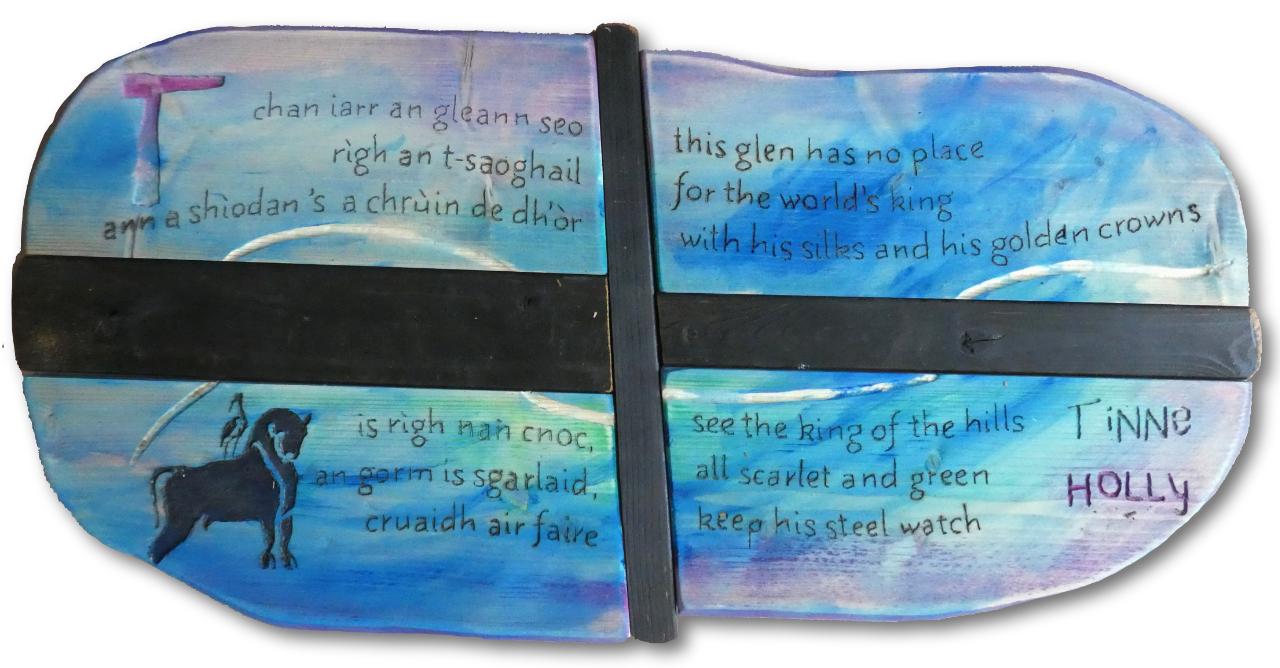 T
chan iarr an gleann seo
rìgh an t-saoghail
ann a shìodan 's a chrùin de dh'òr
this glen has no place
for the world's king
with his silks and his golden crowns
is rìgh nan cnoc,
an gorm is sgarlaid,
cruaidh air faire
see the king of the hills
all scarlet and green
keep his steel watch
TiNNe
HOLLy